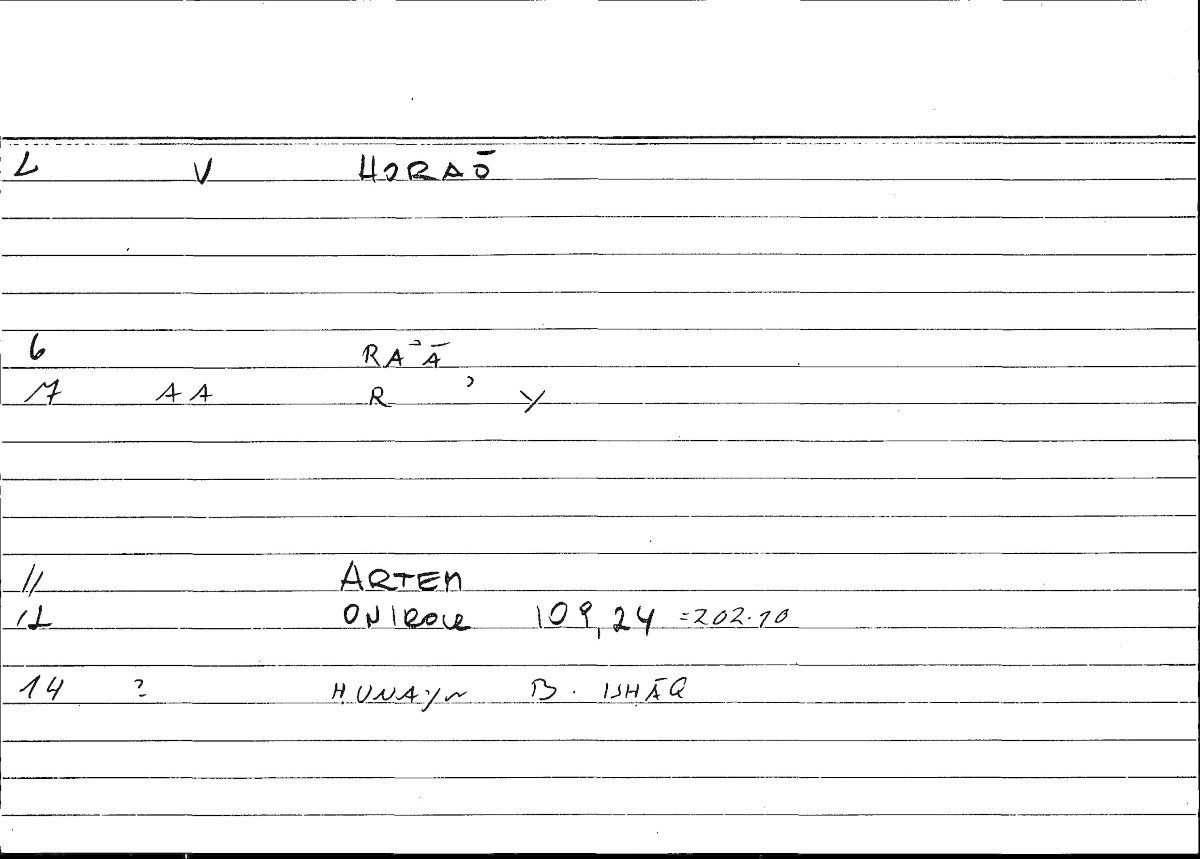 2 V HORAŌ
6 RAʾĀ
7 AA R ʾ Y
11 ARTEM
12 ONIROCR 109,24 =202.10
14 ? ḤUNAYN B. ISHĀQ